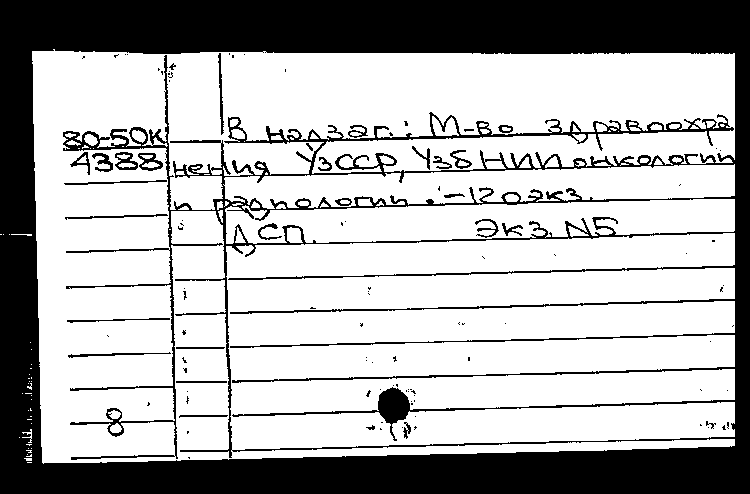 80-50к В надзаг.: М-во здравоохра
4388 нения УзССР, Узб НИИ онкологии
и радиологии. -120экз.
ДСП. Экз. N5
8